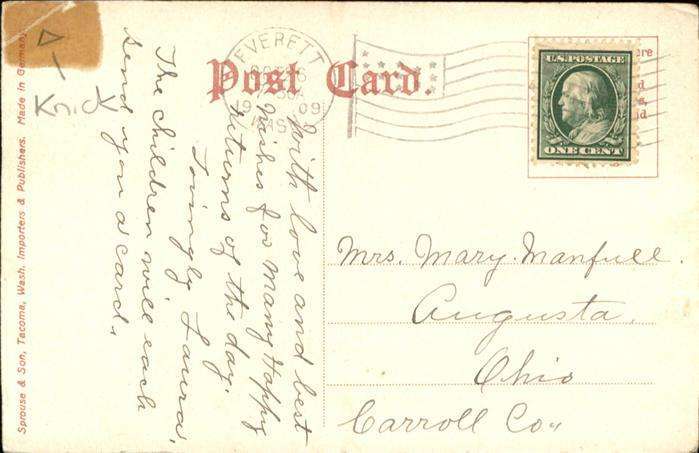 Post Card.
EVERETT
1909
U.S. POSTAGE
ONE CENT
With love and best
wishes for many Happy
returns of the day.
Lovingly Laura.
The children will each
send you a card.
Mrs. Mary Manfull.
Augusta.
Ohio
Carroll Co.
Sprouse & Son, Tacoma, Wash. Importers & Publishers. Made in Germany